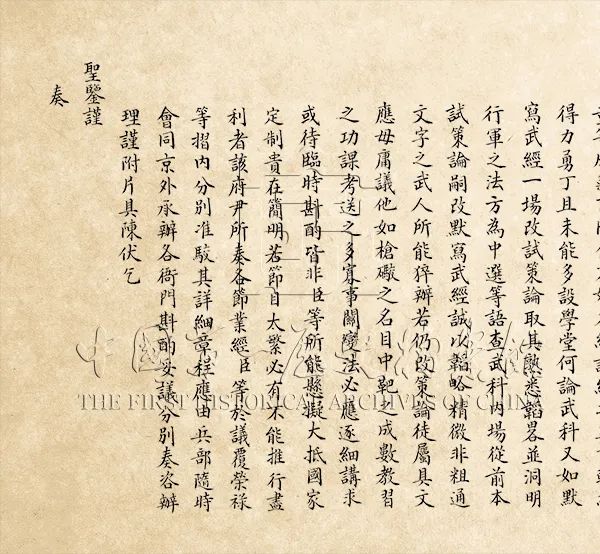 得力勇丁且未能多設學堂何論武科又如默
寫武經一場改試策論取其熟悉韜畧並洞明
行軍之法方為中選等語查武科內場從前本
試策論嗣改默寫武經誠以韜略精微非粗通
文字之武人所能猝辦若仍改策論徒屬具文
應毋庸議他如槍礮之名目中靶之成數教習
之功課考送之多寡事關變法必應逐細講求
或待臨時斟酌皆非臣等所能懸擬大抵國家
定制貴在簡明若節目太繁必有不能推行盡
利者該府尹所奏各節業經臣等於議覆榮祿
等摺內分別准駁其詳細章程應由兵部隨時
會同京外承辦各衙門斟酌妥議分別奏咨辦
理謹附片具陳伏乞
聖鑒謹
奏
中國第一歷史檔案館
THE FIRST HISTORICAL ARCHIVES OF CHINA